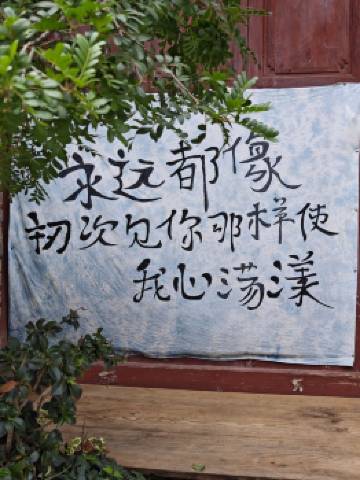 永远都像
初次见你那样使
我心荡漾